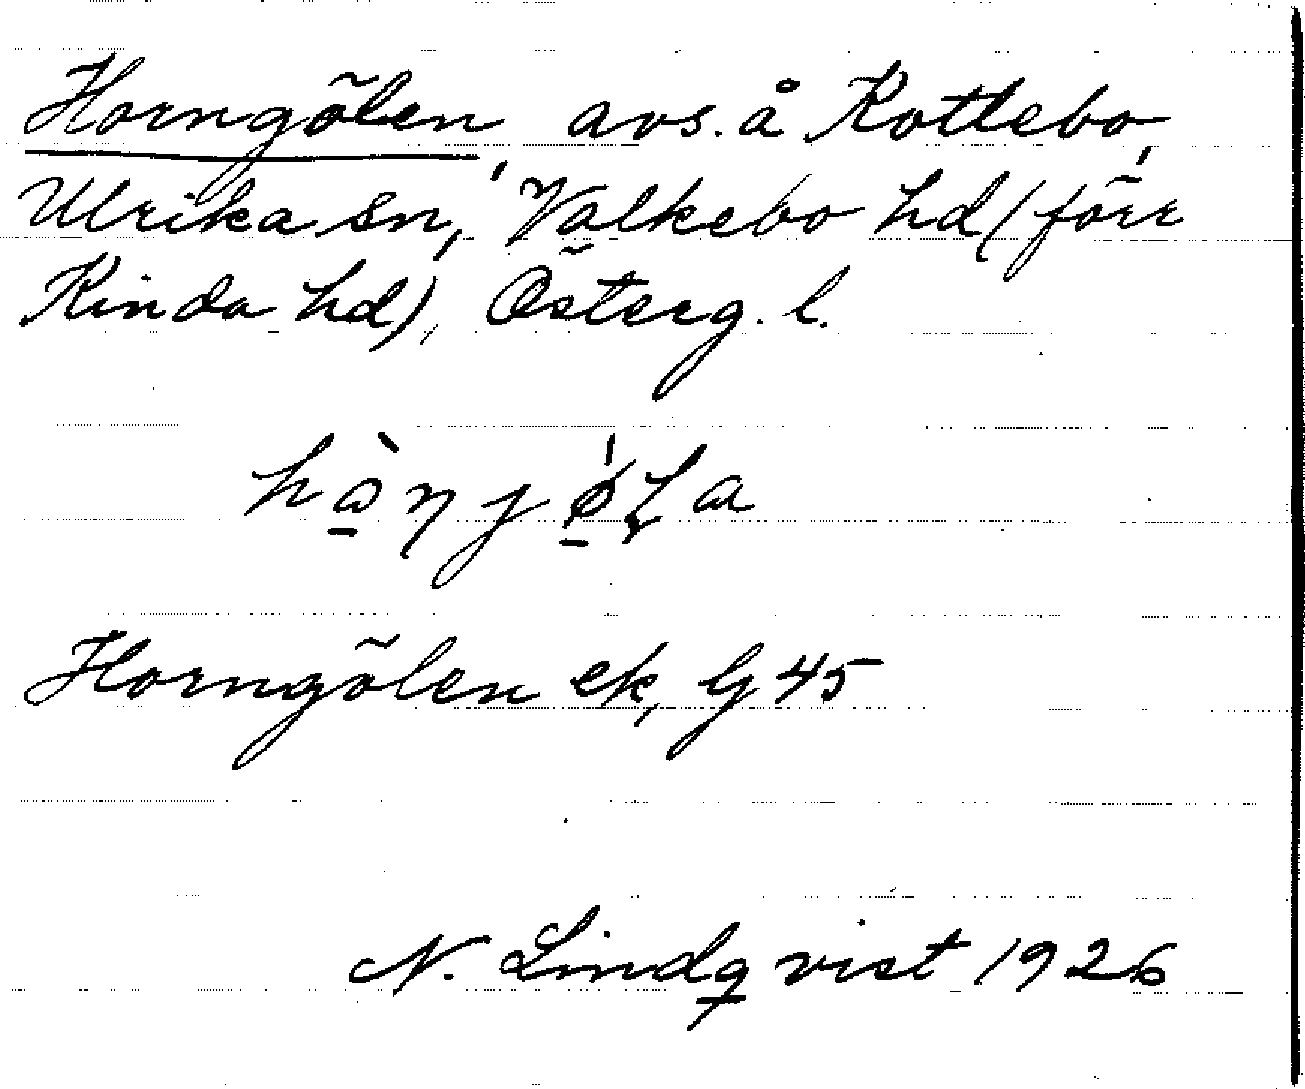 Horngölen, avs. å Kottebo,
Ulrika sn, Valkebo hd (förr
Kinda hd), Österg. l.
Horngölen ek, G 45
N. Lindqvist 1926